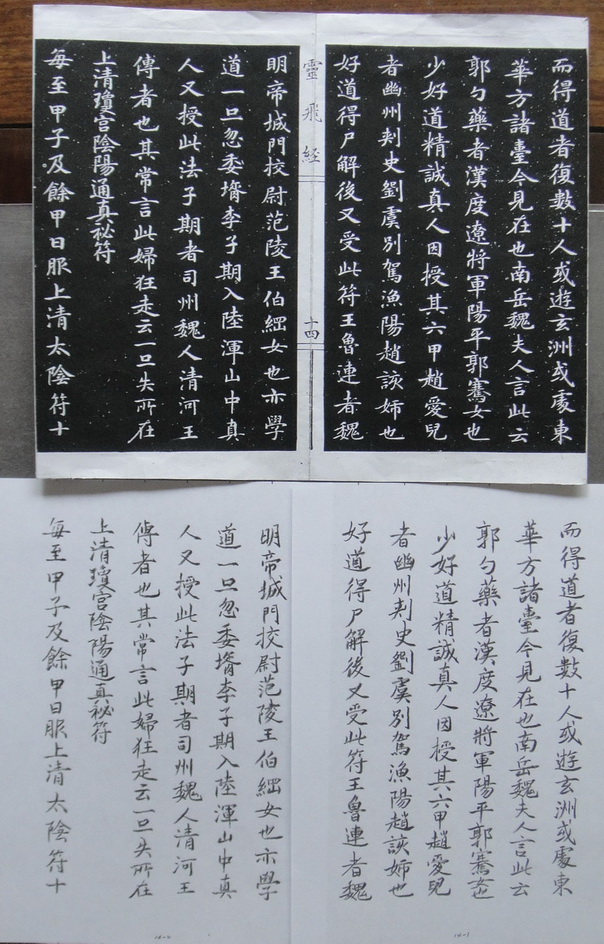 而得道者復數十人或遊玄洲或處東
華方諸臺今見在也南岳魏夫人言此云
郭勺藥者漢度遼將軍陽平郭騫女也
少好道精誠真人因授其六甲趙愛兒
者幽州刾史劉虞別駕漁陽趙該姉也
好道得尸解後又受此符王魯連者魏
靈飛經
十四
明帝城門挍尉范陵王伯綱女也亦學
道一旦忽委壻李子期入陸渾山中真
人又授此法子期者司州魏人清河王
傳者也其常言此婦狂走云一旦失所在
上清瓊宮陰陽通真祕符
每至甲子及餘甲日服上清太陰符十
而得道者復數十人或遊玄洲或處東
華方諸臺今見在也南岳魏夫人言此云
郭勺藥者漢度遼將軍陽平郭騫女也
少好道精誠真人因授其六甲趙愛兒
者幽州刾史劉虞別駕漁陽趙該姉也
好道得尸解後又受此符王魯連者魏
明帝城門挍尉范陵王伯綱女也亦學
道一旦忽委壻李子期入陸渾山中真
人又授此法子期者司州魏人清河王
傳者也其常言此婦狂走云一旦失所在
上清瓊宮陰陽通真祕符
每至甲子及餘甲日服上清太陰符十
14-1
14-2